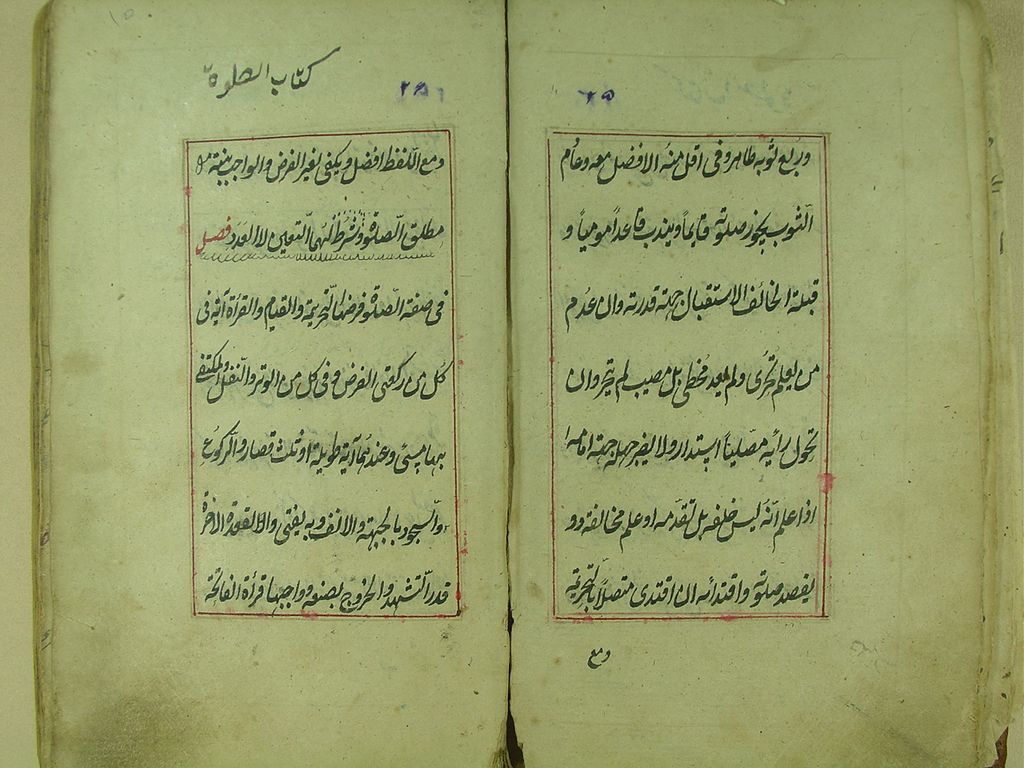 ٢٥
وربع ثوبه طاهر وفى اقل منهُ الافضل معه وعادم
الثّوب يجوز صلوته قايماً ويندب قاعداً مومياً و
قبلة الخائف الاستقبال جهة قدرته وان عدم
من يعلم تحرّى ولم يعد مُخطى بل مصيب لم يتحرّ وان
تحول رأيه مصلّياً استدار ولا يضر جهله جهة امامه
اذا علم انّهُ ليس خلفه بل تقدّمه او علم مخالفته و
يقصد صلوته واقتدائه ان اقتدى متصلاً بالتحريمة
ومع
كتاب الصلوة
٢٥٢
ومع التّلفظ افضل ويكفى لغير الفرض والواجب نية
مطلق الصّلوة وشُرِطَ لهما التّعيين لا العدد فصل
فى صفة الصّلوة فرضها التّحريمة والقيام والقرأة آية فى
كل من ركعتى الفرض وفى كل من الوتر والنّفل والمكتفى
بها مسئ وعندهما آية طويلة او ثلث قصار والرّكوع
والسّجود بالجبهة والانف وبه يفتى والقعدة الاخرة
قدر التّشهد والخروج بصنعه وواجبها قرأة الفاتحة